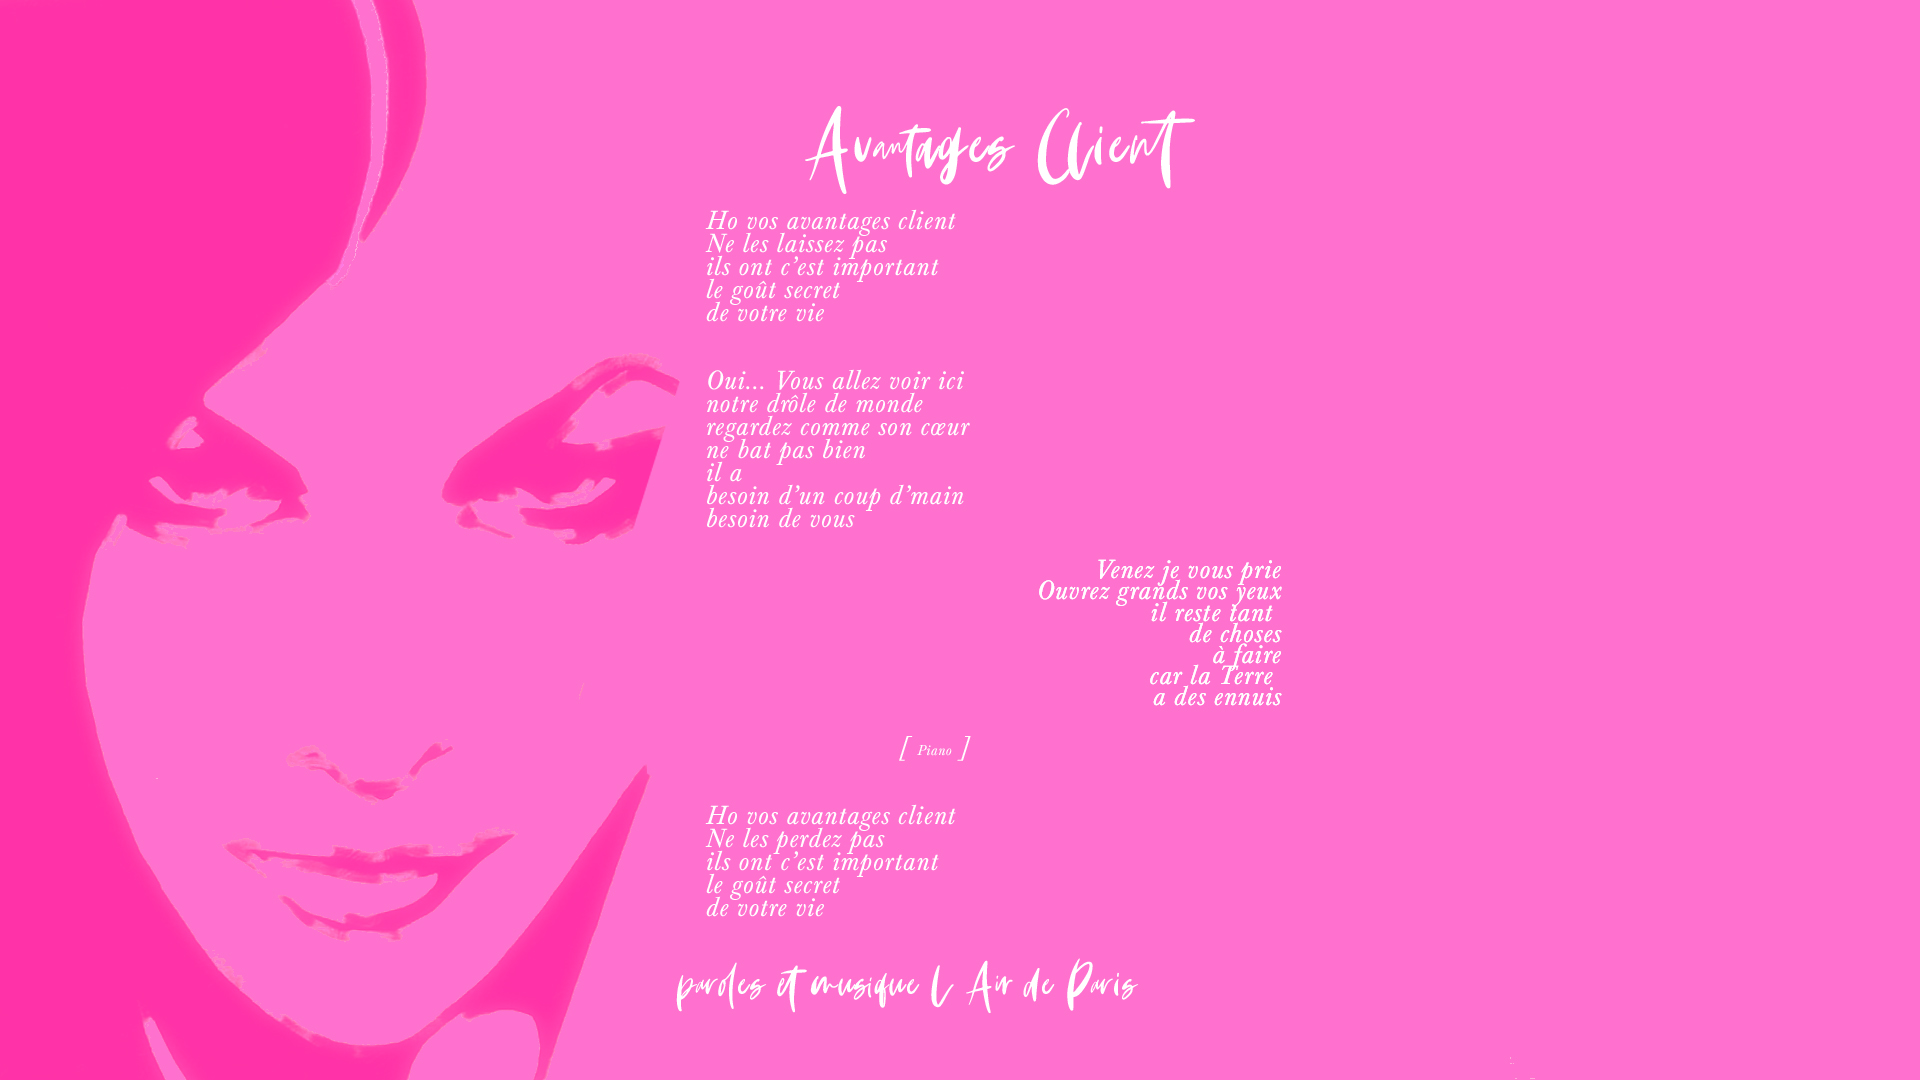 Avantages Client
Ho vos avantages client
Ne les laissez pas
ils ont c’est important
le goût secret
de votre vie
Oui... Vous allez voir ici
notre drôle de monde
regardez comme son cœur
ne bat pas bien
il a
besoin d’un coup d’main
besoin de vous
Venez je vous prie
Ouvrez grands vos yeux
il reste tant
de choses
à faire
car la Terre
a des ennuis
[ Piano ]
Ho vos avantages client
Ne les perdez pas
ils ont c’est important
le goût secret
de votre vie
paroles et musique L Air de Paris